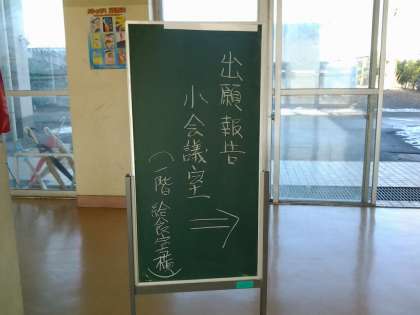 出願報告
小会議室
(一階 給食室横)